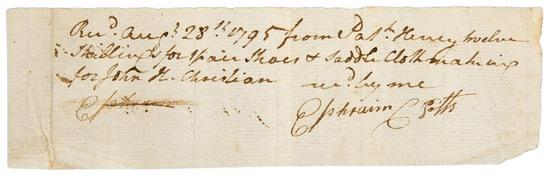 Recd. Augst. 28th. 1795 from Pat. Henry twelve
Shillings for 1 pair Shoes & Saddle Cloth making
for John H. Christian
recd. by me
Ephraim
Ephraim